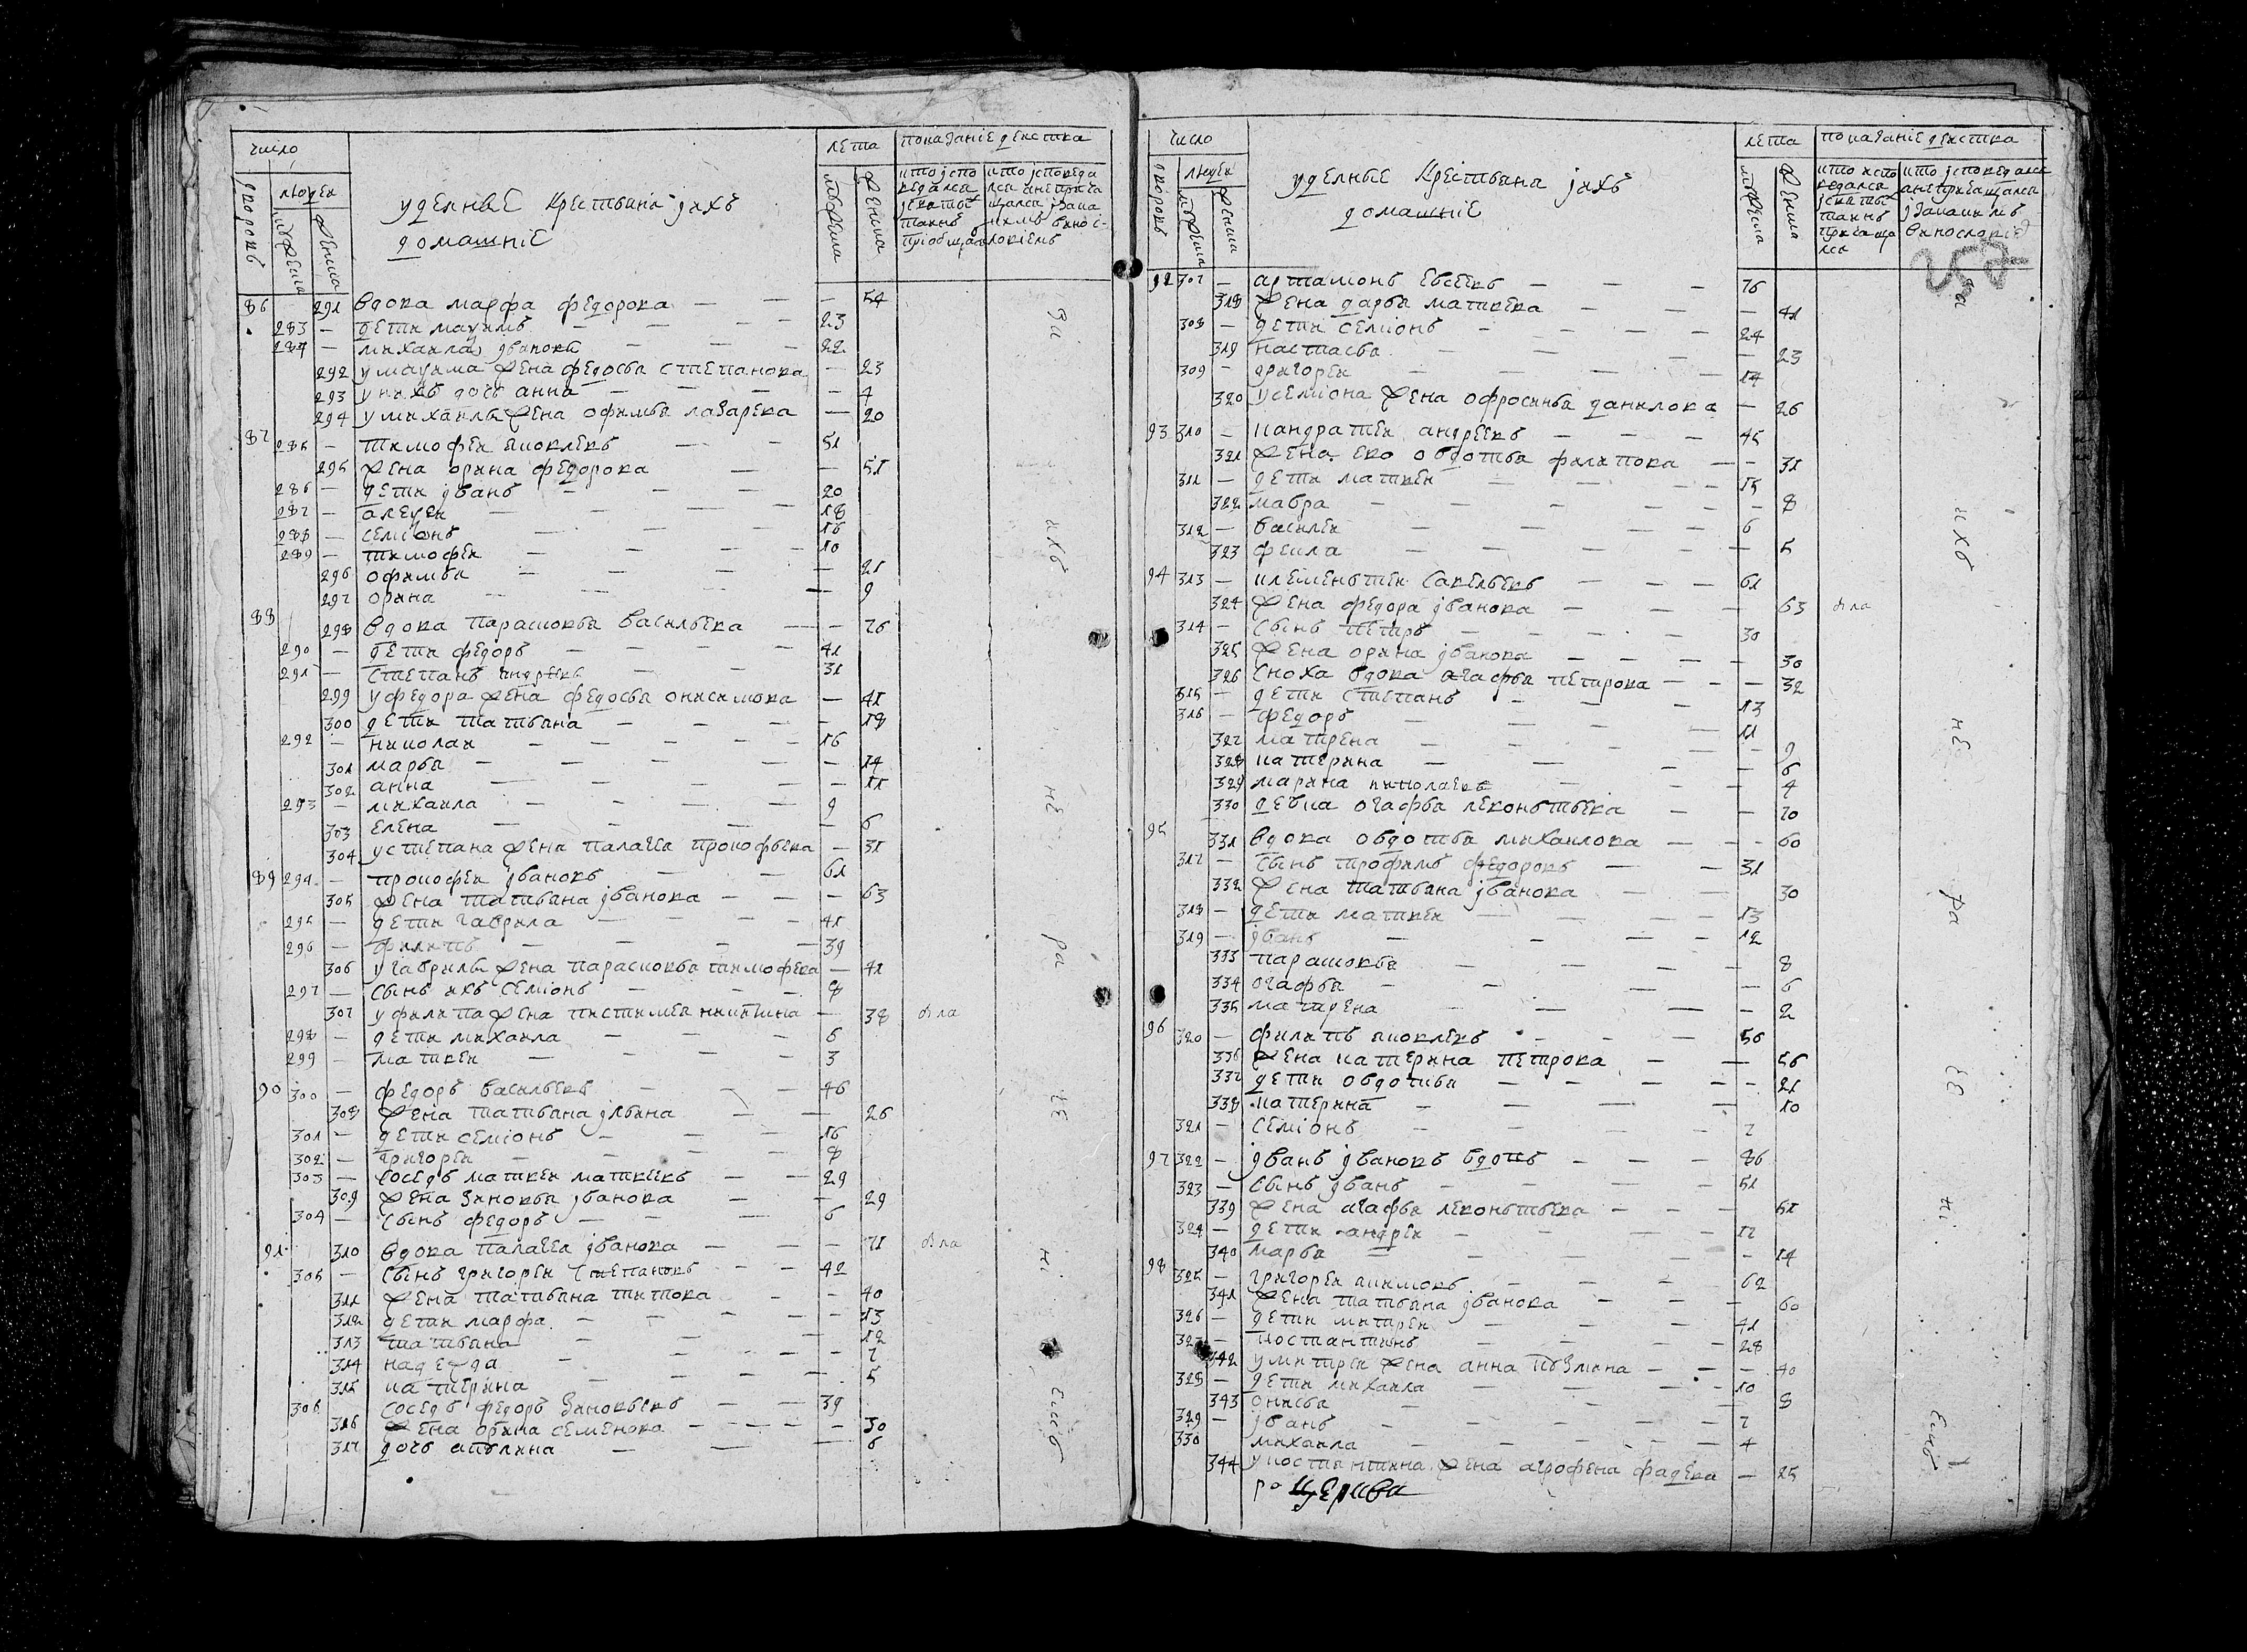 число
лета
показание действа
дворовъ
людей
мужеска
женска
уделные крестьяна јихъ
домашние
мужеска
женска
кто јспо
ведалса
јсвятыхъ
таинъ
приобщал
кто јсповеда
лса анеприча
щалса јзака
кимъ вино
словиемъ
86 291 вдова марфа федорова — 54
283 — дети мауимъ — 23
284 — михаила јвановы — 22
292 у мауима жена федосья степанова — 23
293 у нихъ дочь анна — 4
294 у михаилы жена офимья лазарева — 20
87 285 — тимофеи яковлевъ — 51
295 жена орина федорова — 51
286 — дети јванъ — 20
287 — алеуеи — 18
288 — семионъ — 16
289 — тимофеи — 10
296 офимья — 21
297 орина — 9
88 298 вдова парасковья васильева — 76
290 — дети федоръ — 41
291 — степанъ андреевъ — 31
299 у федора жена федосья онисимова — 41
300 дети татьяна — 18
292 — николаи — 16
301 марья — 14
302 анна — 11
293 — михаила — 9
303 елена — 6
304 у степана жена палагея прокофьева — 31
89 294 — прокофеи јвановъ — 61
305 жена татьяна јванова — 63
295 — дети гаврила — 41
296 — филипъ — 39
306 у гаврилы жена парасковья тимофева — 41
297 — сынъ ихъ семионъ — 8
307 у филипа жена настасья никитина — 38 была
298 — дети михаила — 6
299 — матвеи — 3
90 300 — федоръ васильевъ — 46
308 жена татьяна јльина — 26
301 — дети семионъ — 16
302 — григореи — 8
303 — соседъ матвеи матвеевъ — 29
309 жена зиновья јванова — 29
304 — сынъ федоръ — 6
91 310 вдова палагея јванова — 71 была
305 — сынъ григореи степановъ — 42
311 жена татьяна титова — 40
312 дети марфа — 13
313 татьяна — 12
314 надежда — 7
315 катерина — 5
306 соседъ федоръ зиновьевъ — 39
316 жена орина семенова — 30
317 дочь акулина — 6
за
ихъ
не
ра
де
ні
емъ
число
лета
показание действа
дворовъ
людей
мужеска
женска
уделные крестьяна јихъ
домашние
мужеска
женска
кто испо
ведалса
јсвятыхъ
таинъ
причаща
лса
кто јсповедалса
анепричащалса
јзакакимъ
винословие
92 307 — артамонъ евсеевъ — 76
318 жена дарья матвеева — 41
308 — дети семионъ — 24
319 настасья — 23
309 — григореи — 14
320 у семиона жена офросинья данилова — 26
93 310 — кандратеи андреевъ — 45
321 жена ево овдотья филипова — 31
311 — дети матвеи — 15
322 мавра — 8
312 — василеи — 6
323 фекла — 5
94 313 — клементеи савельевъ — 61
324 жена федора јванова — 63 была
314 — сынъ петръ — 30
325 жена орина јванова — 30
326 сноха вдова агафья петрова — 32
315 — дети степанъ — 13
316 — федоръ — 11
327 матрена — 9
328 катерина — 6
329 марина николаевъ — 4
330 девка огафья леоньтьева — 20
95 331 вдова овдотья михаилова — 60
317 — сынъ трофимъ федоровъ — 31
332 жена татьяна јванова — 30
318 — дети матвеи — 13
319 — јванъ — 12
333 парасковья — 8
334 огафья — 6
335 матрена — 2
96 320 — филипъ яковлевъ — 56
336 жена катерина петрова — 56
337 дети овдотья — 21
338 катерина — 10
321 — семионъ — 7
97 322 — јванъ јвановъ вдовъ — 86
323 — сынъ јванъ — 51
339 жена агафья леоньтьева — 51
324 — дети андреи — 17
340 марья — 14
98 325 — григореи акимовъ — 62
341 жена татьяна јванова — 60
326 — дети митреи — 41
327 — костантинъ — 28
342 у митреи жена анна кузмина — 40
328 — дети михаила — 10
343 онисья — 8
329 — јванъ — 7
330 михаила — 4
344 у костантина жена агрофена фадева — 25
за
ихъ
не
ра
де
ні
емъ